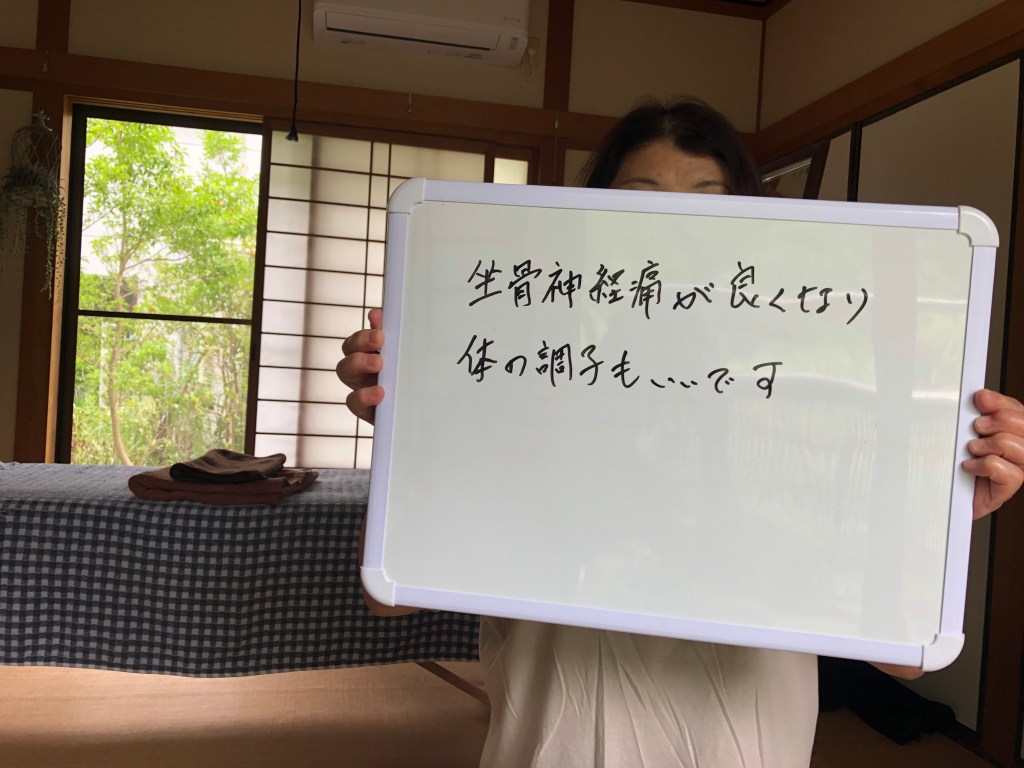 坐骨神経痛が良くなり
体の調子もいいです